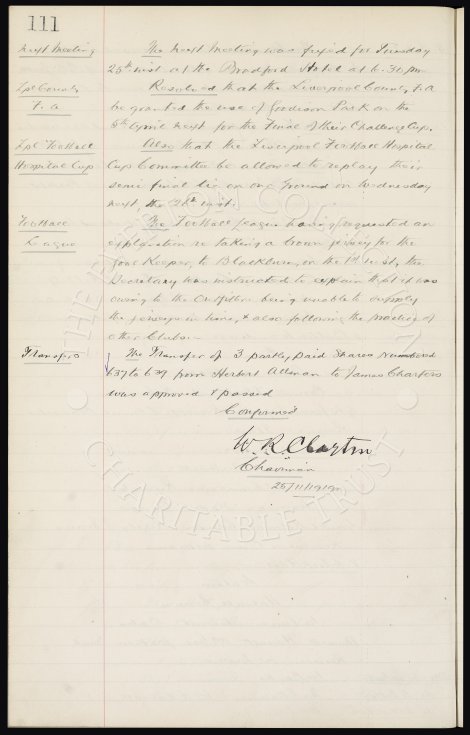 111
Next Meeting
The next Meeting was fixed for Tuesday
25th inst at the Bradford Hotel at 6-30pm
Lpl County
F.A
Resolved that the Liverpool County F.A
be granted the use of Goodison Park on the
5th April next for the Final of their Challenge Cup,
Lpl Football
Hospital Cup
Also that the Liverpool Football Hospital
Cup Committee be allowed to replay their
semi final tie on our Ground on Wednesday
next the 26th inst.
Football
League
The Football League having requested an
explanation re taking a brown jersey for the
Goal Keeper, to Blackburn, on the inst, the
Secretary was instructed to explain that it was
owing to the Outfitters being unable to supply
the jerseys in time, & also following the practice of
other Clubs.-
Transfers
The Transfer of 3 partly paid Shares numbered
637 to 639 from Herbert to James Charters
was approved & passed
Confirmed
W. R. Clayton
Chairman
25/11/19
THE EVERTON COLLECTION
CHARITABLE TRUST